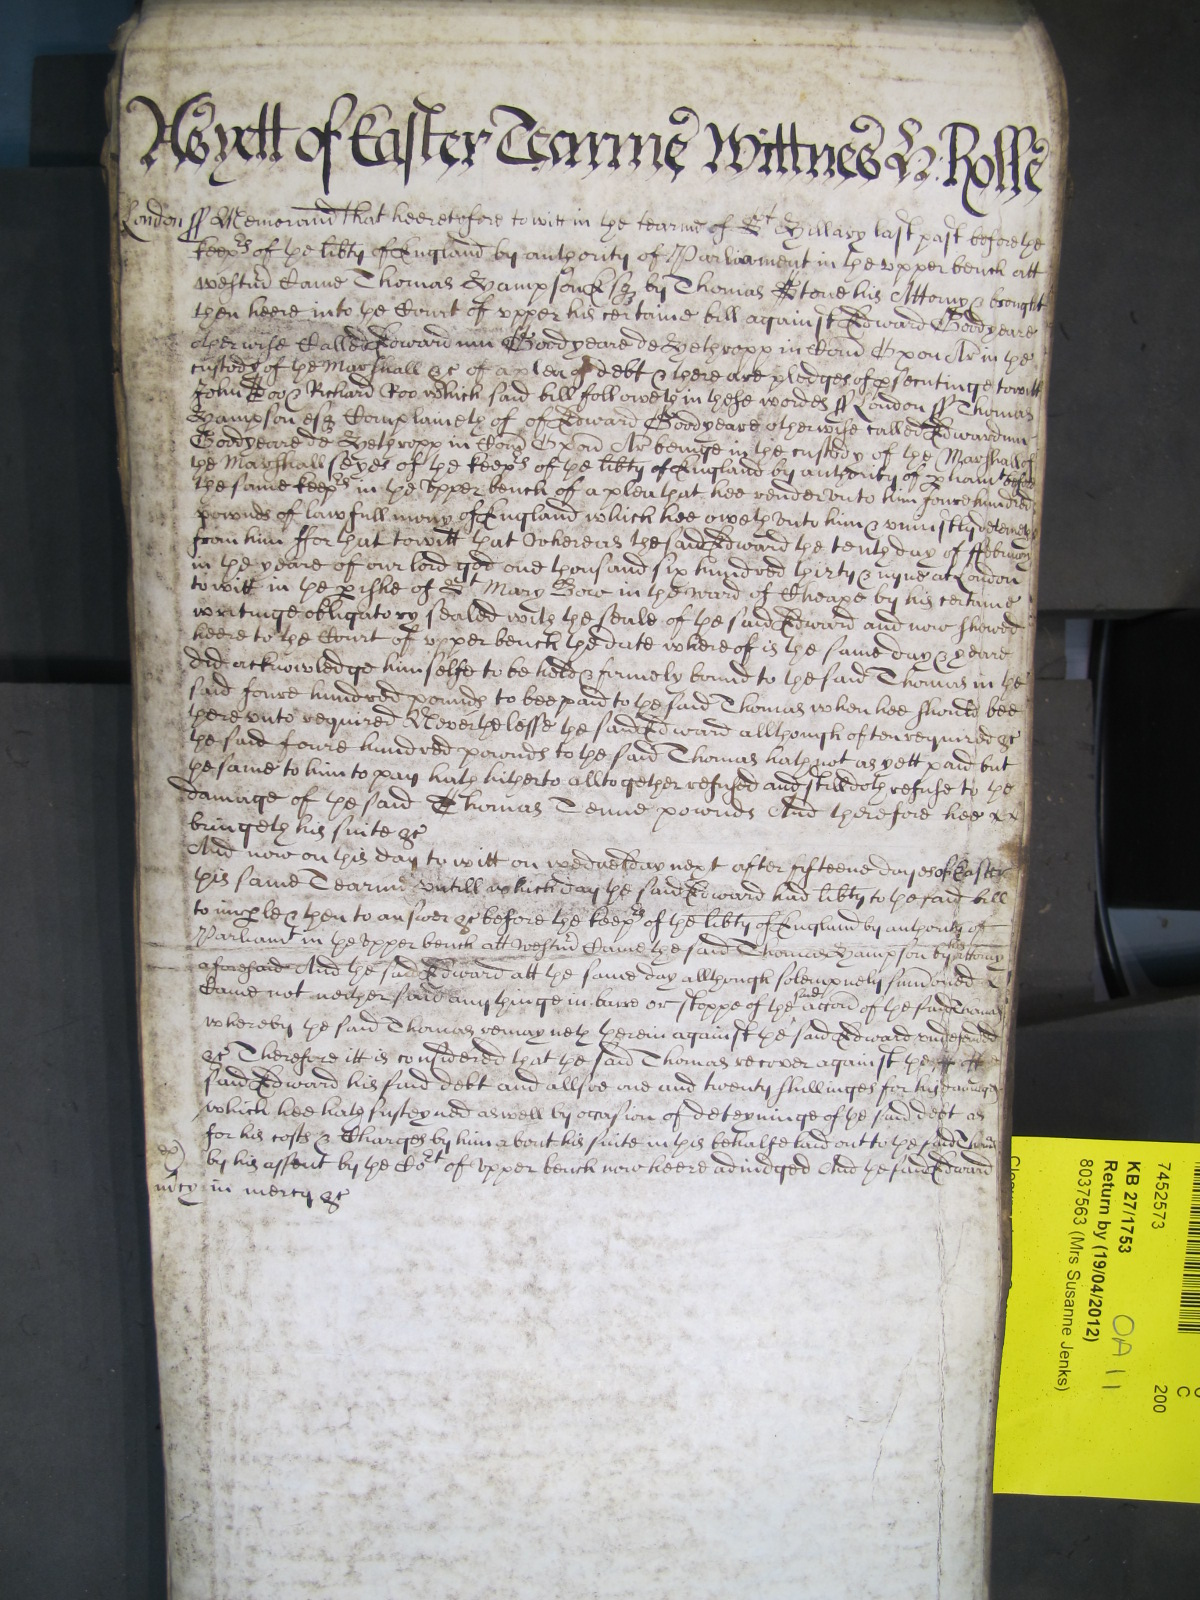 As yett of Easter Tearme Wittnes H: Rolle
London ss Memorand that heeretofore to witt in the tearme of St Hillary last past before the
keeprs of the libty of England by authority of Parliament in the upper bench att
Westmr Came Thomas Hampson Esq by Thomas Stone his Attorny & brought
then heere into the Court of upper his certaine bill against Edward Goodyeare
otherwise Called Edwardum Goodyeare de Hethropp in Com Oxon Ar in the
custody of the Marshall &c of a plea of debt & there are pledges of psecutinge to witt
John Doo & Richard Roo which said bill followeth in these wordes ss London ss Thomas
Hampson esq Complaineth of of Edward Goodyeare otherwise called Edwardum
Goodyeare de Hethropp in Com Oxon Ar beinge in the custody of the Marshall of
the Marshallseyes of the keeprs of the libty of England by authority of pliamt before
the same keeprs in the upper bench of a plea that hee render unto him foure hundred
pownds of lawfull mony of England which hee oweth unto him & uniustly deteineth
from him ffor that to witt that whereas the said Edward the tenth day of ffebruary
in the yeare of our lord god one thousand six hundred thirty & nyne at London
to witt in the pishe of St Mary Bow in the ward of Cheape by his certaine
writinge obligatory sealed with the seale of the said Edward and now shewed
heere to the Court of upper bench the date whereof is the same day & yeare
did acknowledge himselfe to be held & firmely bound to the said Thomas in the
said foure hundred pounds to bee paid to the said Thomas when hee should bee
thereunto required Neverthelesse the said Edward allthough often required &c
the said foure hundred pownds to the said Thomas hath not as yett paid but
the same to him to pay hath hitherto alltogether refused and still doth refuse to the
damage of the said Thomas Tenne pownds And therefore hee x x
bringeth his suite &c
And now on this day to witt on wednesday next after fifteene dayes of Easter
this same Tearme untill which day the said Edward had libty to the said bill
to imple & then to answer &c before the keeprs of the libty of England by authority of
Parliamt in the upper bench att Westmr Came the said Thomas Hampson by his Attorny
aforesaid And the said Edward att the same day allthough solempnely sumoned x
Came not neither said any thinge in barre or stoppe of the said accon of the said Thomas
whereby the said Thomas remayneth therein against the said Edward undefended
&c Therefore itt is considered that the said Thomas recover against the
said Edward his said debt and allsoe one and twenty shillinges for his damages
which hee hath susteyned aswell by occasion of deteyninge of the said debt as
for his costs & Charges by him about his suite in this behalfe laid out to the said Thomas
by his assent by the Cort of upper bench now heere adiudged And the said Edward
mcy in mercy &c
7452573
KB 27/1753
Return by (19/04/2012)
8037563 (Mrs Susanne Jenks)
OA 11
C
200